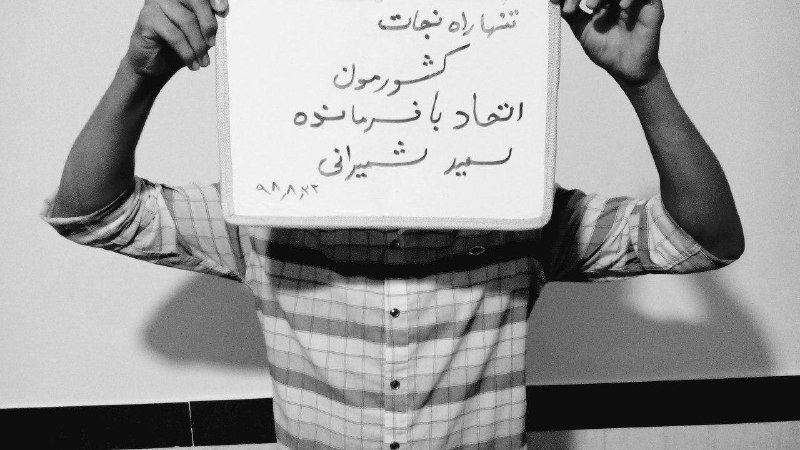 تنها راه نجات
کشورمون
اتحاد با فرمانده
سعید شیرانی
۹۸٫۸٫۲۳